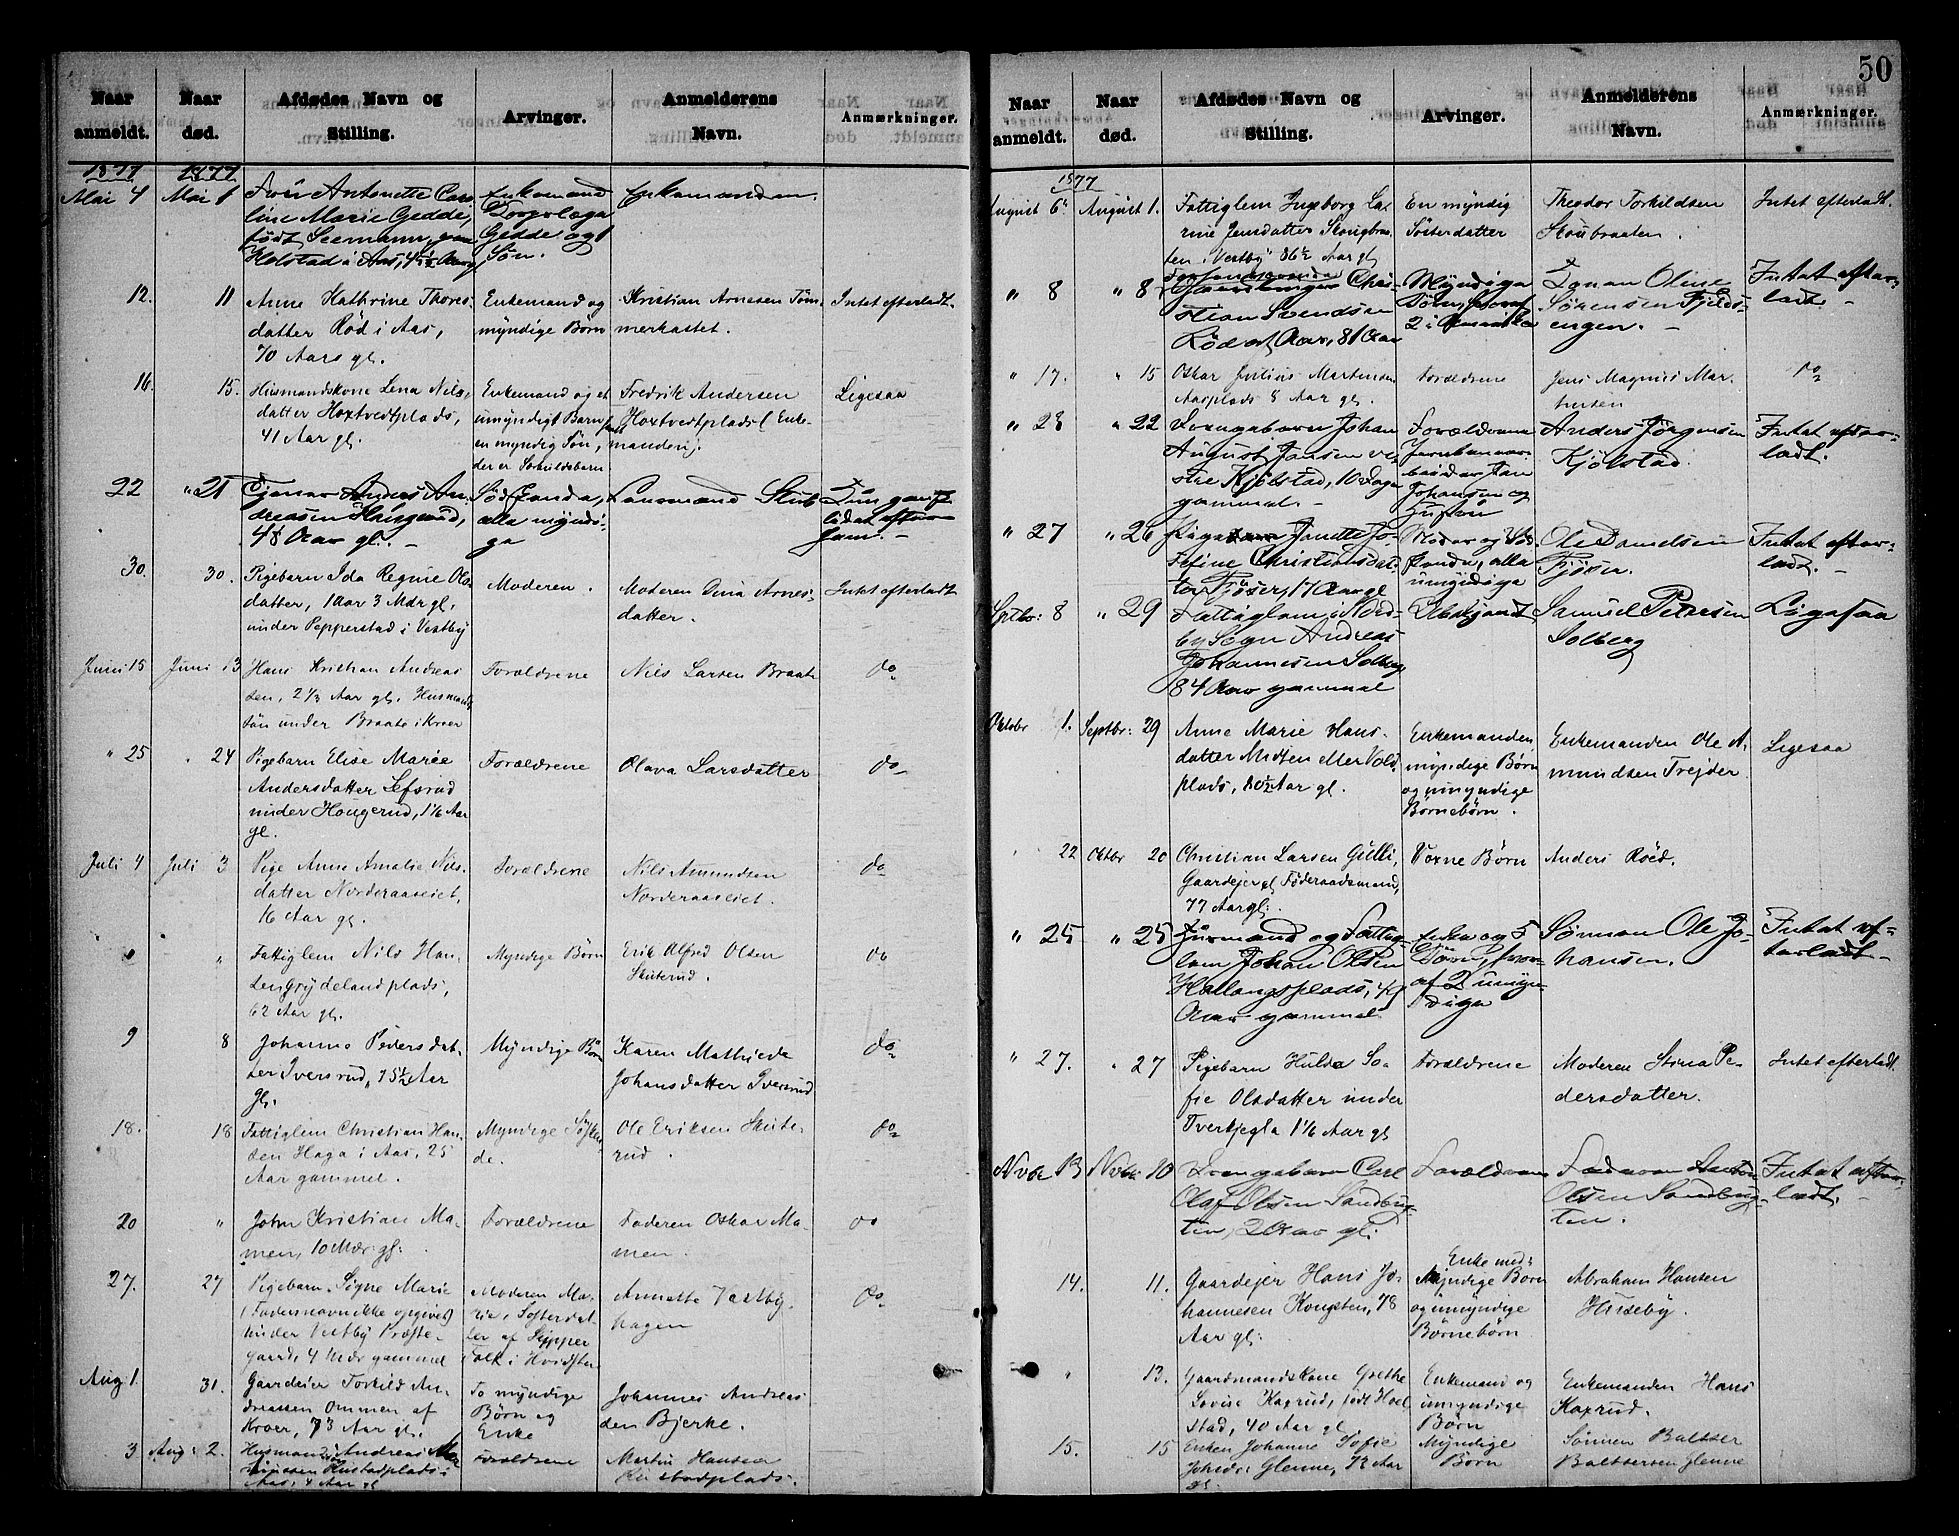 50
Naar anmeldt.
Naar død.
Afdødes Navn og Stilling.
Arvinger.
Anmelderens Navn.
Anmærkninger.
1877
1877
Mai 4
Mai 1
Antonette Caro-
line Marie Gedde,
født Seemann, paa
Holstad i Aas,
Enkemand
Gedde og 1
Søn.
Enkemanden.
12.
11
Anne Kathrine Thores-
datter Rød i Aas,
70 Aars gl.
Enkemand og
myndige Børn
Kristian Arnesen Töm-
merkastet.
Intet efterladt.
16.
15.
Husmandskone Lena Nils-
datter Hoxtvedtplads,
41 Aar gl.
Enkemand og et
umyndigt Barn samt
en myndig Søn,
der er Særkuldsbarn
Fredrik Andersen
Hoxtvedtplads (Enke-
manden).
Ligesaa
22
" 21
Tjener Anders An-
dreasen Haugerud,
48 Aar gl.
Sødskende,
alle myndi-
ge
Lensmand Stub
30.
30.
Pigebarn Ida Regine Ols-
datter, 1 Aar 3 Mdr gl.
under Pepperstad i Vestby
Moderen.
Moderen Dina Arnes-
datter.
Intet efterladt
Juni 15
Juni 13
Hans Kristian Andreas-
sen, 2 1/2 Aar gl. Husmands-
søn under Braate i Kroer
Forældrene
Nils Larsen Braate
do
" 25
" 24
Pigebarn Elise Marie
Andersdatter Lefsrud
under Hougerud, 1 1/6 Aar
gl.
Forældrene
Olava Larsdatter
do
Juli 4
Juli 3
Pige Anne Amalie Nils-
datter Norderaaseiet,
16 Aar gl.
Forældrene
Nils Amundsen
Norderaaseiet.
do
"
"
Fattiglem Nils Han-
sen Grydelandplads,
62 Aar gl.
Myndige Børn
Erik Alfred Olsen
Skuterud.
do
9
8
Johanne Pedersdat-
ter Iversrud, 75 1/2 Aar
gl.
Myndige Børn
Karen Mathilde
Johansdatter Iversrud
do
18.
18
Fattiglem Christian Han-
sen Haga i Aas, 25
Aar gammel.
Myndige Søsken-
de.
Ole Eriksen Skute-
rud.
do
20
"
John Kristian Ma-
men, 10 Mdr. gl.
Forældrene
Faderen Oskar Ma-
men.
do
27.
27
Pigebarn Signe Marie
(Fadernavn ikke opgivet)
under Vestby Præste-
gaard, 4 Mdr gammel
Moderen Ma-
rie, Søsterdat-
ter af Skipper
Falk i Hvidsten
Annette Vestby-
hagen
do
Aug 1.
31.
Gaardeier Torkild An-
dreassen Ommen af
Kroer, 73 Aar gl.
To myndige
Børn og
Enke
Johannes Andreas-
sen Bjerke.
3
Aug. 2.
Forældrene
Martin Hansen
Naar anmeldt.
Naar død.
Afdødes Navn og Stilling.
Arvinger.
Anmelderens Navn.
Anmærkninger.
1877
August 6
August 1.
Fattiglem Ingborg Ka-
rine Jensdatter Skougbra-
ten i Vestby 86 1/2 Aar gl
En myndig
Søsterdatter
Theodor Torkildsen
Skoubraaten.
Intet efterladt.
" 8
" 8
Chri-
stian Svendsen
Røed, 81 Aar
Myndige
Børn, hvoraf
2 i Amerika
Oline
Sørensen Fjelds-
engen.
Intet efter-
ladt.
" 17.
" 15
Oskar Julius Martinsen
Aasplads 8 Aar gl.
Forældrene
Jens Magnus Mar-
tinsen
do
" 23
" 22
Drengebarn Johan
August Jansen ve-
stre Kjølstad, 10 Dage
gammel.
Forældrene
Jernbanear-
beider Jan
Johansen og
Hustru
Anders Jörgensen
Kjölstad.
Intet efter-
ladt.
" 27
" 26
Pige Janette Jo-
sefine Christiansdat-
ter Fjøser, 17 Aar gl
Moder og Sød-
skende, alle
umyndige
Ole Danielsen
Fjøser.
Intet efter-
ladt.
Septbr: 8
" 29
Fattiglem i Nord-
by Sogn Andreas
Johannesen Solberg
84 Aar gammel
Ubekjendt
Samuel Petersen
Solberg
Ligesaa
Oktober 1.
Septbr: 29
Anne Marie Hans-
datter Midten eller Vold-
plads, 80 1/2 Aar gl.
Enkemanden,
myndige Børn
og umyndige
Børnebørn.
Enkemanden Ole A-
mundsen Trejder
Ligesaa
22
Oktbr 20
Christian Larsen Gulli,
Gaardejer og Føderaadsmand,
77 Aar gl.
Voxne Børn
Anders Røed.
" 25
" 25
Husmand og Fattig-
lem Johan Olsen
Hallangsplads, 49
Aar gammel.
Enke og 5
Børn, hvor-
af 2 umyn-
dige
Sönnen Ole Jo-
hansen.
Intet ef-
terladt.
" 27.
" 27
Pigebarn Hulda So-
fie Olsdatter under
Tverkjegla 1 1/6 Aar gl
Forældrene
Moderen Stina Pe-
dersdatter.
Intet efterladt.
Novbr 13
Novbr 10
Drengebarn Carl
Olaf Olsen Sandbug-
ten, 2 Aar gl.
Forældrene
Faderen Anton
Olsen Sandbug-
ten.
Intet efter-
ladt.
14.
11.
Gaardejer Hans Jo-
hannesen Kongsten, 78
Aar gl.
Enke med
Myndige Børn
og umyndige
Børnebørn
Abraham Hansen
Huseby.
"
13.
Gaardmandskone Grethe
Lovise Kaxrud, født Hoel-
stad, 40 Aar gl
Enkemand og
umyndige
Børn
Enkemanden Hans
Kaxrud.
15.
15
Enken Johanne Sofie
Glenne, 72 Aar
gl.
Myndige
Børn
Sønnen Baltser
Baltsersen Glenne